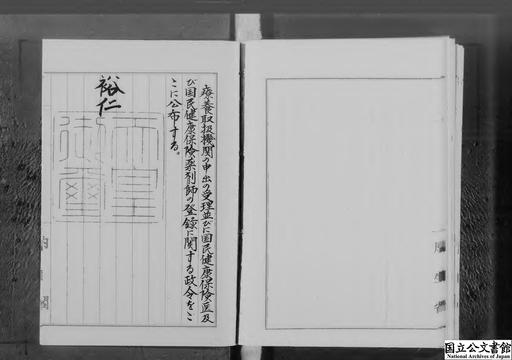 療養取扱機関の申出の受理並びに国民健康保険医及
び国民健康保険薬剤師の登録に関する政令をこ
こに公布する。
裕仁
天皇
御璽
内閣
厚生省
国立公文書館
National Archives of Japan